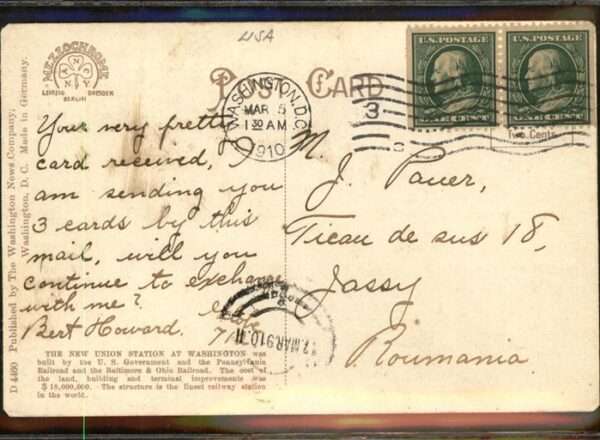 USA
MEZZOCHROME
A N C V
LEIPZIG DRESDEN
BERLIN
POST CARD
WASHINGTON, D.C.
MAR 5
1 30 AM
1910
3
U.S. POSTAGE
ONE CENT
U.S. POSTAGE
ONE CENT
Two Cents
Your very pretty
card received, I
am sending you
3 cards by this
mail, will you
continue to exchange
with me?
Bert Howard.
M. J. Pauer,
Ticau de sus 18,
Jassy
Roumania
MAR 910
D 4460 Published by The Washington News Company,
Washington, D. C. Made in Germany.
THE NEW UNION STATION AT WASHINGTON was
built by the U. S. Government and the Pennsylvania
Railroad and the Baltimore & Ohio Railroad. The cost of
the land, building and terminal improvements was
$ 18,000,000. The structure is the finest railway station
in the world.